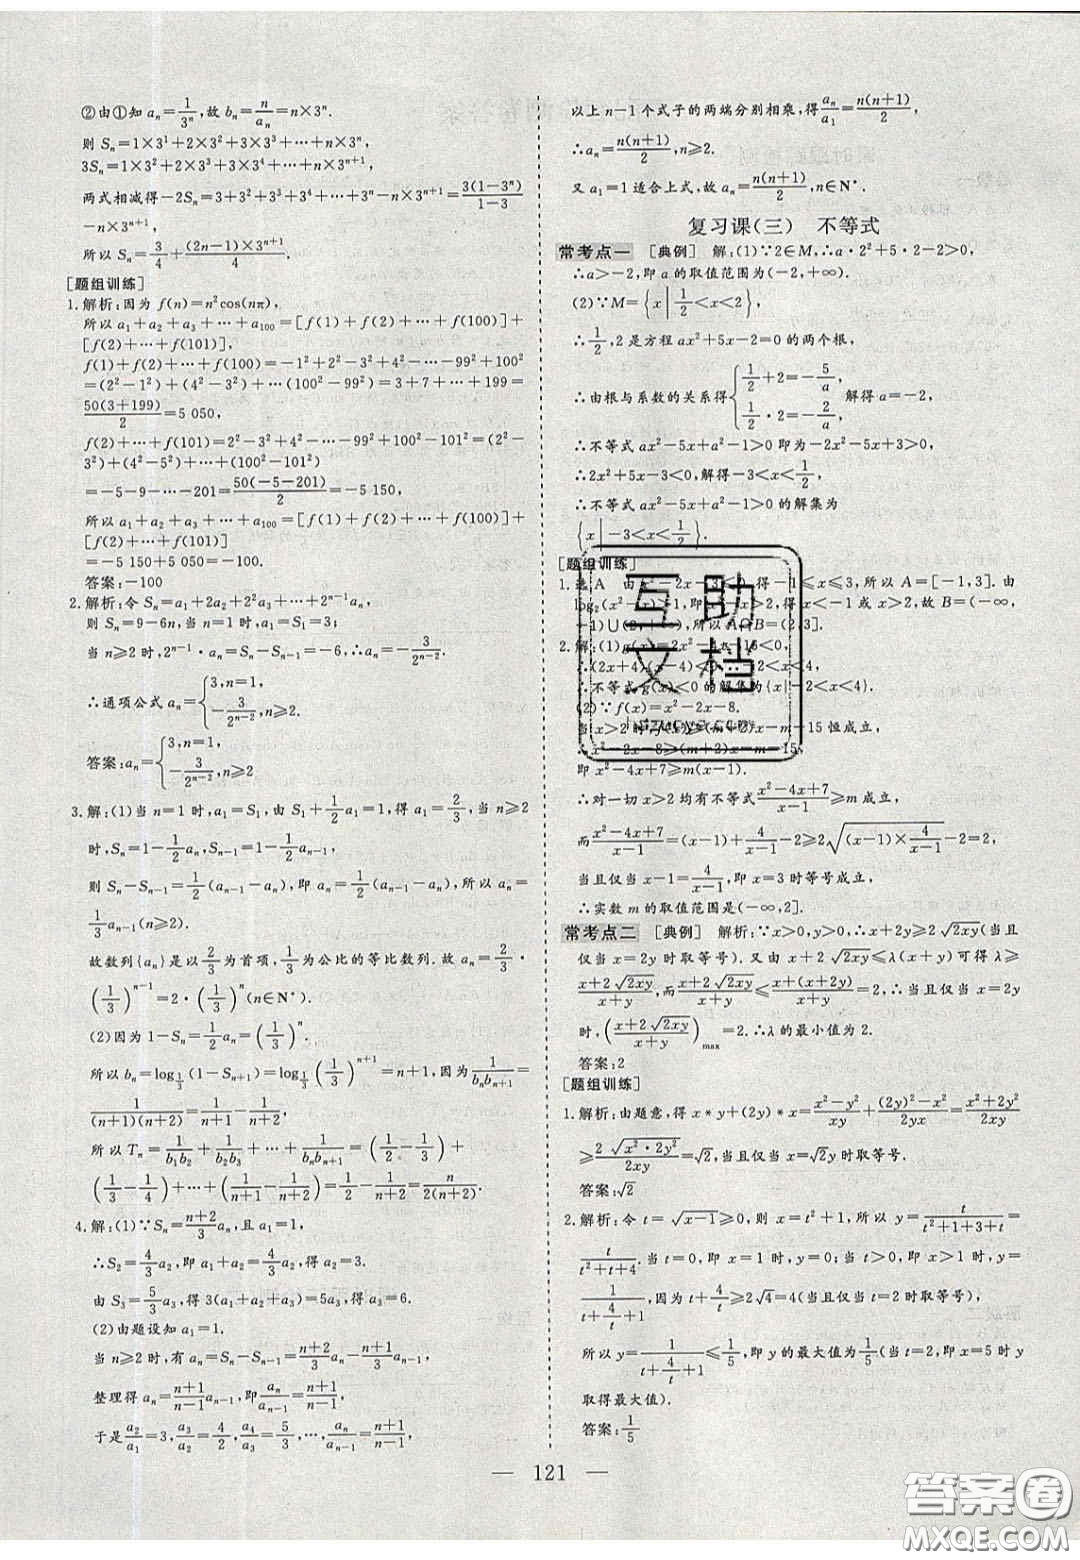 ②由①知 aₙ=1/3ⁿ,故 bₙ=n/aₙ=n×3ⁿ.
则 Sₙ=1×3¹+2×3²+3×3³+…+n×3ⁿ,
3Sₙ=1×3²+2×3³+3×3⁴+…+n×3ⁿ⁺¹,
两式相减得-2Sₙ=3+3²+3³+…+3ⁿ-n×3ⁿ⁺¹=3(1-3ⁿ)/(1-3)
-n×3ⁿ⁺¹,
所以 Sₙ=3/4+(2n-1)×3ⁿ⁺¹/4.
[题组训练]
1.解析:因为 f(n)=n²cos(nπ),
所以 a₁+a₂+a₃+…+a₁₀₀=[f(1)+f(2)+…+f(100)]+
[f(2)+…+f(101)],
f(1)+f(2)+…+f(100)=-1²+2²-3²+4²-…-99²+100²
=(2²-1²)+(4²-3²)+…(100²-99²)=3+7+…+199=
50(3+199)/2=5 050,
f(2)+…+f(101)=2²-3²+4²-…-99²+100²-101²=(2²-
3²)+(4²-5²)+…+(100²-101²)
=-5-9-…-201=50(-5-201)/2=-5 150,
所以 a₁+a₂+a₃+…+a₁₀₀=[f(1)+f(2)+…+f(100)]+
[f(2)+…+f(101)]
=-5 150+5 050=-100.
答案:-100
2.解析:令 Sₙ=a₁+2a₂+2²a₃+…+2ⁿ⁻¹aₙ,
则 Sₙ=9-6n,当 n=1 时,a₁=S₁=3;
当 n≥2 时,2ⁿ⁻¹·aₙ=Sₙ-Sₙ₋₁=-6,∴aₙ=-3/2ⁿ⁻².
∴通项公式 aₙ={3,n=1, -3/2ⁿ⁻²,n≥2.
答案:aₙ={3,n=1, -3/2ⁿ⁻²,n≥2
3.解:(1)当 n=1 时,a₁=S₁,由 S₁+1/2a₁=1,得 a₁=2/3,当 n≥2
时,Sₙ=1-1/2aₙ,Sₙ₋₁=1-1/2aₙ₋₁,
则 Sₙ-Sₙ₋₁=1/2(aₙ₋₁-aₙ),即 aₙ=1/2(aₙ₋₁-aₙ),所以 aₙ=
1/3aₙ₋₁(n≥2).
故数列{aₙ}是以2/3为首项,1/3为公比的等比数列.故 aₙ=2/3·
(1/3)ⁿ⁻¹=2·(1/3)ⁿ(n∈N*).
(2)因为 1-Sₙ=1/2aₙ=(1/3)ⁿ.
所以 bₙ=log₁/₃(1-Sₙ₊₁)=log₁/₃(1/3)ⁿ⁺¹=n+1,因为1/(bₙbₙ₊₁)=
1/((n+1)(n+2))=1/(n+1)-1/(n+2),
所以 Tₙ=1/(b₁b₂)+1/(b₂b₃)+…+1/(bₙbₙ₊₁)=(1/2-1/3)+
(1/3-1/4)+…+(1/(n+1)-1/(n+2))=1/2-1/(n+2)=n/(2(n+2)).
4.解:(1)∵Sₙ=(n+2)/3 aₙ,且 a₁=1,
∴S₂=4/3a₂,即 a₁+a₂=4/3a₂,得 a₂=3.
由 S₃=5/3a₃,得 3(a₁+a₂+a₃)=5a₃,得 a₃=6.
(2)由题设知 a₁=1.
当 n≥2 时,有 aₙ=Sₙ-Sₙ₋₁=(n+2)/3 aₙ-(n+1)/3 aₙ₋₁,
整理得 aₙ=(n+1)/(n-1) aₙ₋₁,即aₙ/aₙ₋₁=(n+1)/(n-1),
于是a₂/a₁=3,a₃/a₂=4/2,a₄/a₃=5/3,…,aₙ/aₙ₋₁=(n+1)/(n-1),
以上 n-1 个式子的两端分别相乘,得aₙ/a₁=n(n+1)/2,
∴aₙ=n(n+1)/2,n≥2.
又 a₁=1 适合上式,故 aₙ=n(n+1)/2,n∈N*.
复习课(三) 不等式
常考点一 [典例] 解:(1)∵2∈M,∴a·2²+5·2-2>0,
∴a>-2,即 a 的取值范围为(-2,+∞).
(2)∵M={x|1/2<x<2},
∴1/2,2 是方程 ax²+5x-2=0 的两个根,
∴由根与系数的关系得{1/2+2=-5/a, 1/2·2=-2/a 解得 a=-2,
∴不等式 ax²-5x+a²-1>0 即为-2x²-5x+3>0,
∴2x²+5x-3<0,解得-3<x<1/2,
∴不等式 ax²-5x+a²-1>0 的解集为
{x|-3<x<1/2}.
[题组训练]
1.选 A 由 x²-2x-3≤0,得-1≤x≤3,所以 A=[-1,3].由
log₂(x²-x)>1,即 x²-x>2,得 x<-1 或 x>2,故 B=(-∞,
-1)∪(2,+∞),所以 A∩B=(2,3].
2.解:(1)g(x)=2x²-4x-16<0,
∴(2x+4)(x-4)<0,∴-2<x<4,
∴不等式 g(x)<0 的解集为{x|-2<x<4}.
(2)∵f(x)=x²-2x-8.
当 x>2 时,f(x)≥(m+2)x-m-15 恒成立,
∴x²-2x-8≥(m+2)x-m-15,
即 x²-4x+7≥m(x-1).
∴对一切 x>2 均有不等式(x²-4x+7)/(x-1)≥m 成立,
而(x²-4x+7)/(x-1)=(x-1)+4/(x-1)-2≥2√((x-1)×4/(x-1))-2=2,
当且仅当 x-1=4/(x-1),即 x=3 时等号成立,
∴实数 m 的取值范围是(-∞,2].
常考点二 [典例] 解析:∵x>0,y>0,∴x+2y≥2√(2xy)(当且
仅当 x=2y 时取等号).又由 x+2√(2xy)≤λ(x+y)可得 λ≥
(x+2√(2xy))/(x+y),而(x+2√(2xy))/(x+y)≤(x+(x+2y))/(x+y)=2,∴当且仅当 x=2y
时,((x+2√(2xy))/(x+y))max=2.∴λ 的最小值为 2.
答案:2
[题组训练]
1.解析:由题意,得 x*y+(2y)*x=(x²-y²)/xy+((2y)²-x²)/2yx=(x²+2y²)/2xy
≥2√(x²·2y²)/2xy=√2,当且仅当 x=√2y 时取等号.
答案:√2
2.解析:令 t=√(x-1)≥0,则 x=t²+1,所以 y=t/(t²+1+3+t)=
t/(t²+t+4).当 t=0,即 x=1 时,y=0;当 t>0,即 x>1 时,y=
1/(t+4/t+1),因为 t+4/t≥2√4=4(当且仅当 t=2 时取等号),
所以 y=1/(t+4/t+1)≤1/5,即 y 的最大值为1/5(当 t=2,即 x=5 时 y
取得最大值).
答案:1/5
— 121 —
互助
文档
答案圈
MXQE.COM